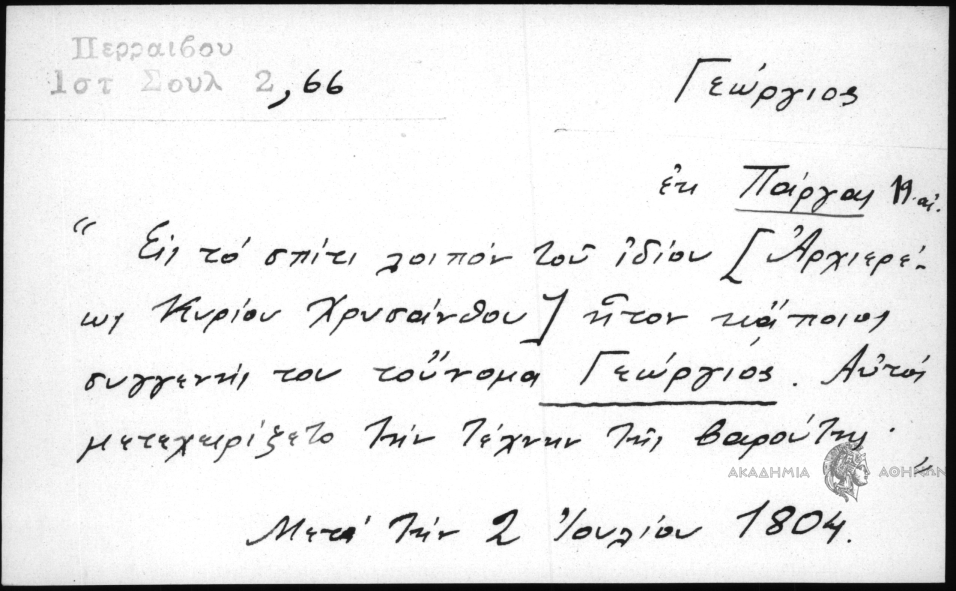 Περραιβου
Ιστ Σουλ 2, 66
Γεώργιος
ἐκ Πάργας Κ.αἰ.
“ Εἰς τό σπίτι λοιπόν τοῦ ἰδίου [Ἀρχιερέ-
ως Κυρίου Χρυσάνθου] ἦτον κάποιος
συγγενής του τοὔνομα Γεώργιος. Αὐτός
μετεχειρίζετο τήν τέχνην τῆς βαρούτης. ”
ΑΚΑΔΗΜΙΑ ΑΘΗΝΩΝ
Μετά τήν 2 Ἰουλίου 1804.